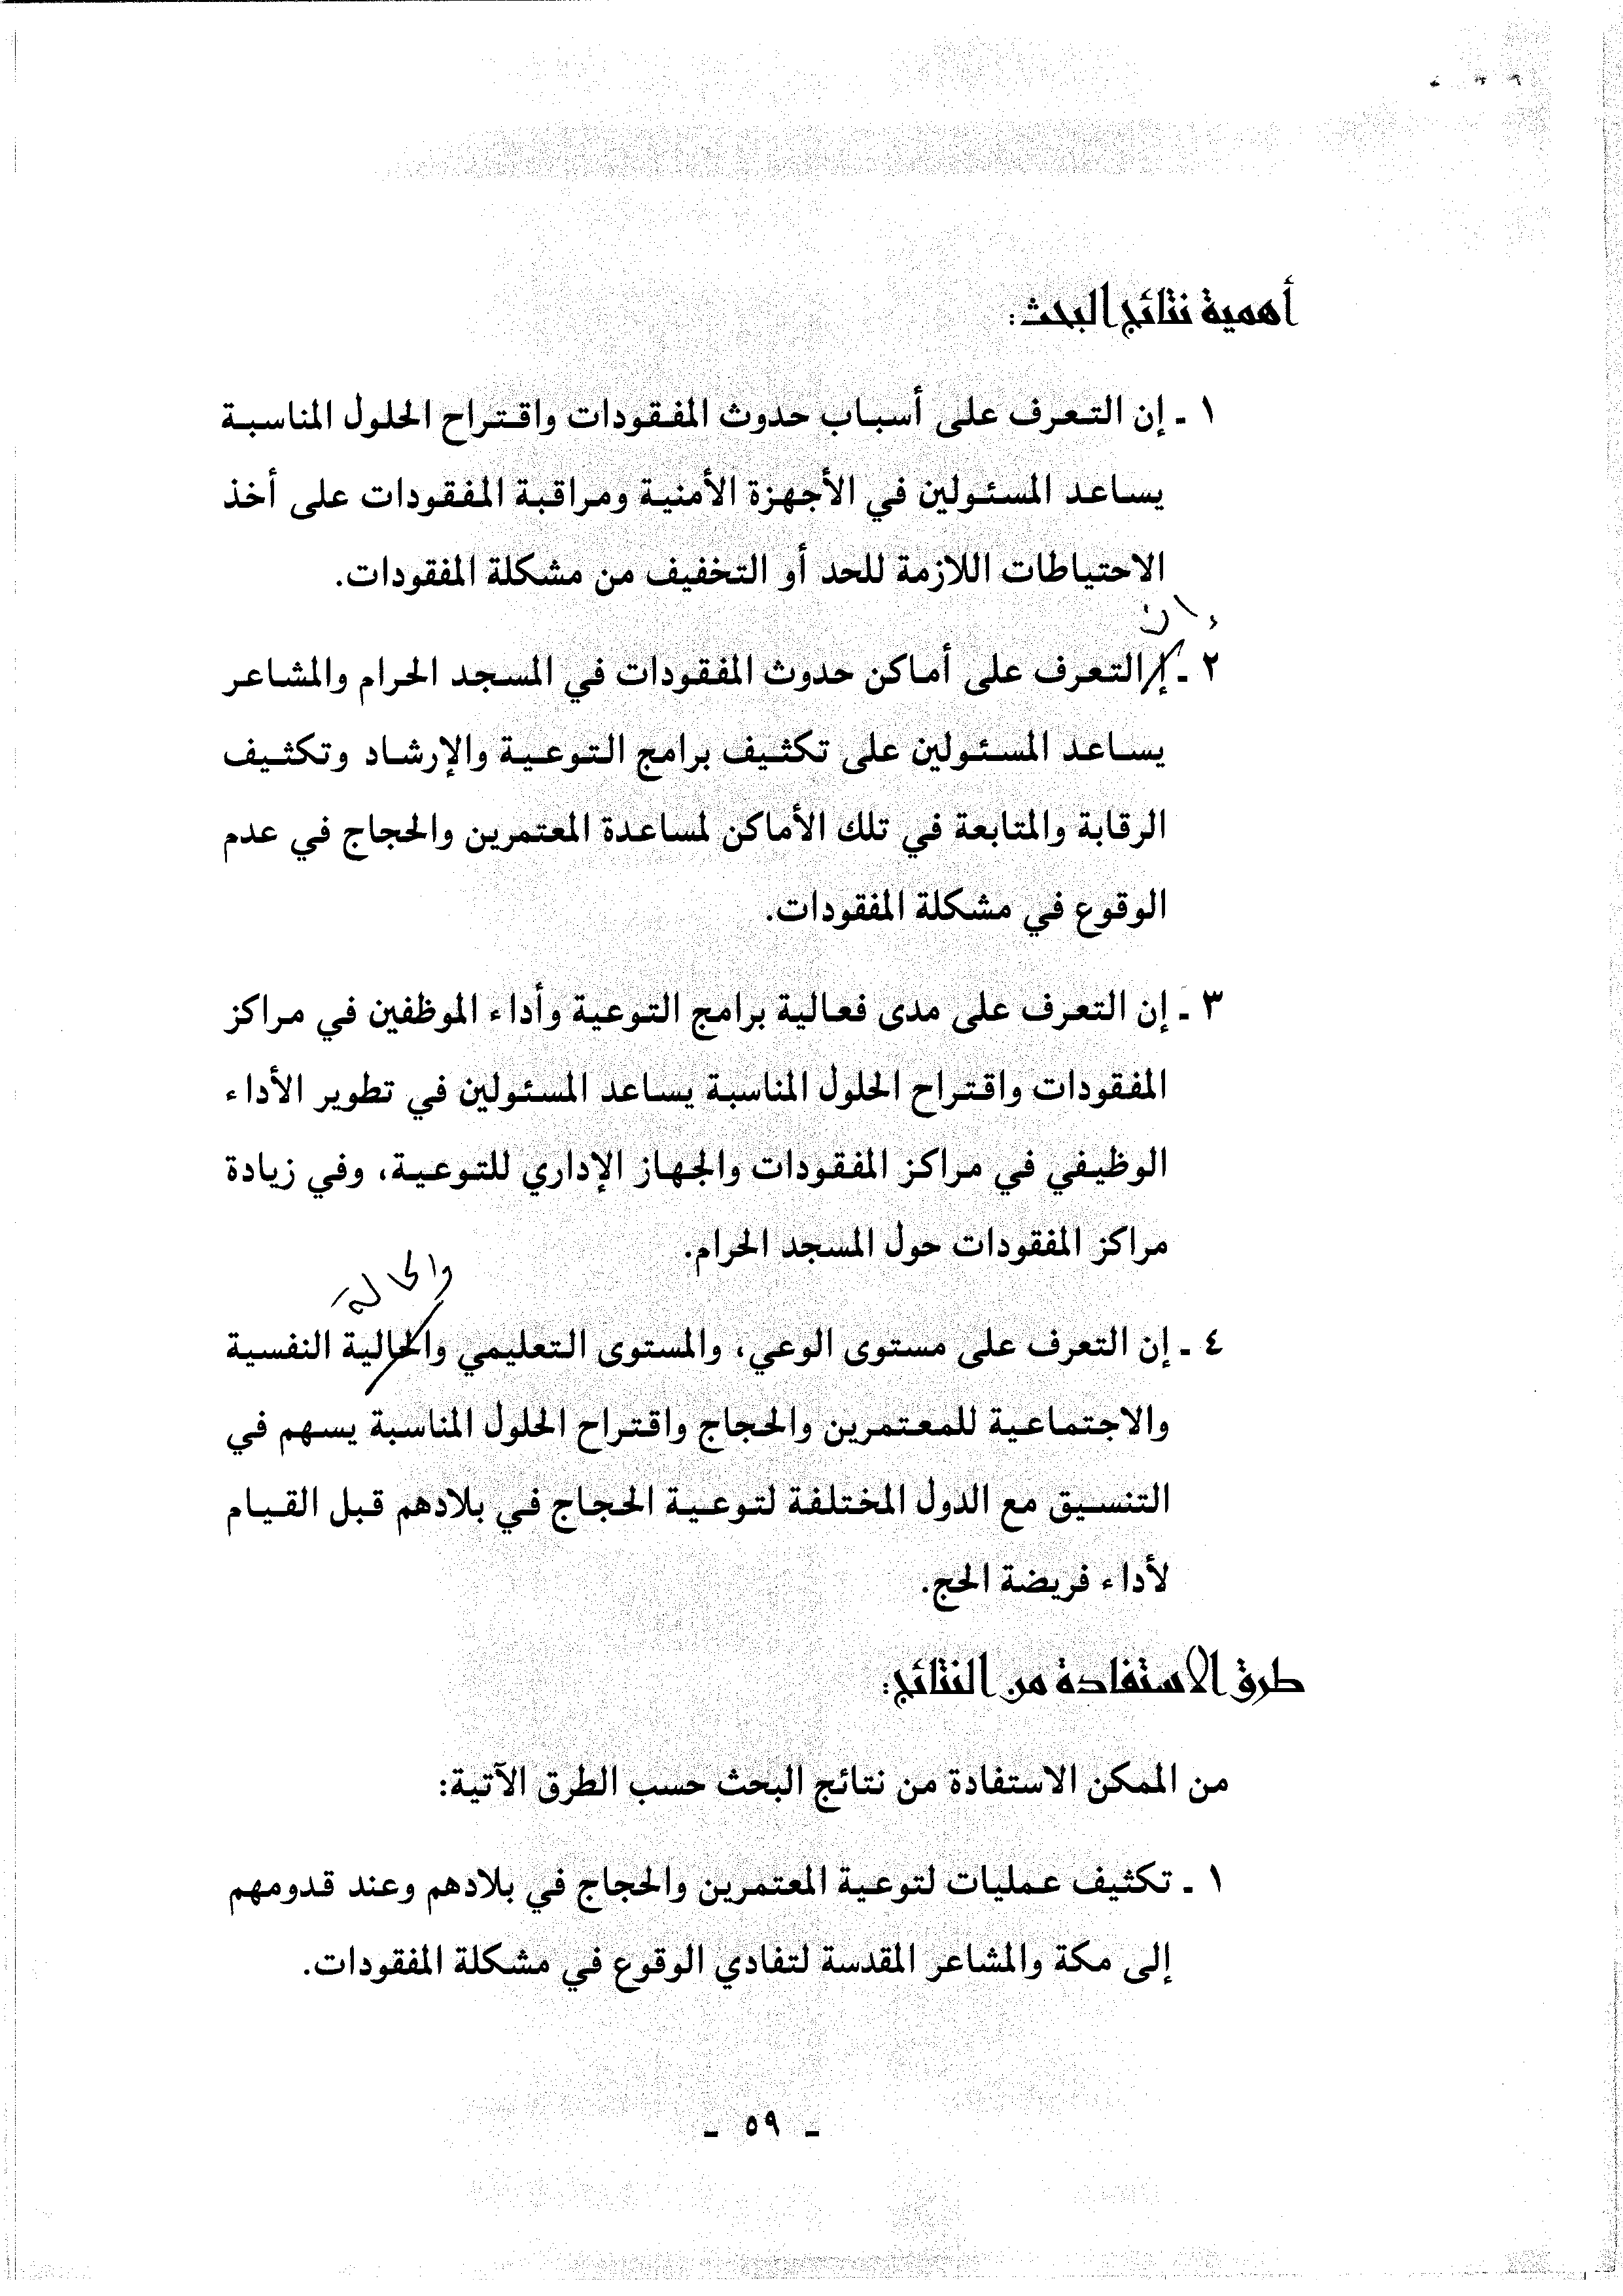 أهمية نتائج البحث:
١ ـ إن التعرف على أسباب حدوث المفقودات واقتراح الحلول المناسبة
يساعد المسئولين في الأجهزة الأمنية ومراقبة المفقودات على أخذ
الاحتياطات اللازمة للحد أو التخفيف من مشكلة المفقودات.
إن
٢ ـ إ التعرف على أماكن حدوث المفقودات في المسجد الحرام والمشاعر
يساعد المسئولين على تكثيف برامج التوعية والإرشاد وتكثيف
الرقابة والمتابعة في تلك الأماكن لمساعدة المعتمرين والحجاج في عدم
الوقوع في مشكلة المفقودات.
٣ ـ إن التعرف على مدى فعالية برامج التوعية وأداء الموظفين في مراكز
المفقودات واقتراح الحلول المناسبة يساعد المسئولين في تطوير الأداء
الوظيفي في مراكز المفقودات والجهاز الإداري للتوعية، وفي زيادة
مراكز المفقودات حول المسجد الحرام.
والحالة
٤ ـ إن التعرف على مستوى الوعي، والمستوى التعليمي والحالية النفسية
والاجتماعية للمعتمرين والحجاج واقتراح الحلول المناسبة يسهم في
التنسيق مع الدول المختلفة لتوعية الحجاج في بلادهم قبل القيام
لأداء فريضة الحج.
طرق الاستفادة من النتائج:
من الممكن الاستفادة من نتائج البحث حسب الطرق الآتية:
١ ـ تكثيف عمليات لتوعية المعتمرين والحجاج في بلادهم وعند قدومهم
إلى مكة والمشاعر المقدسة لتفادي الوقوع في مشكلة المفقودات.
ـ ٥٩ ـ